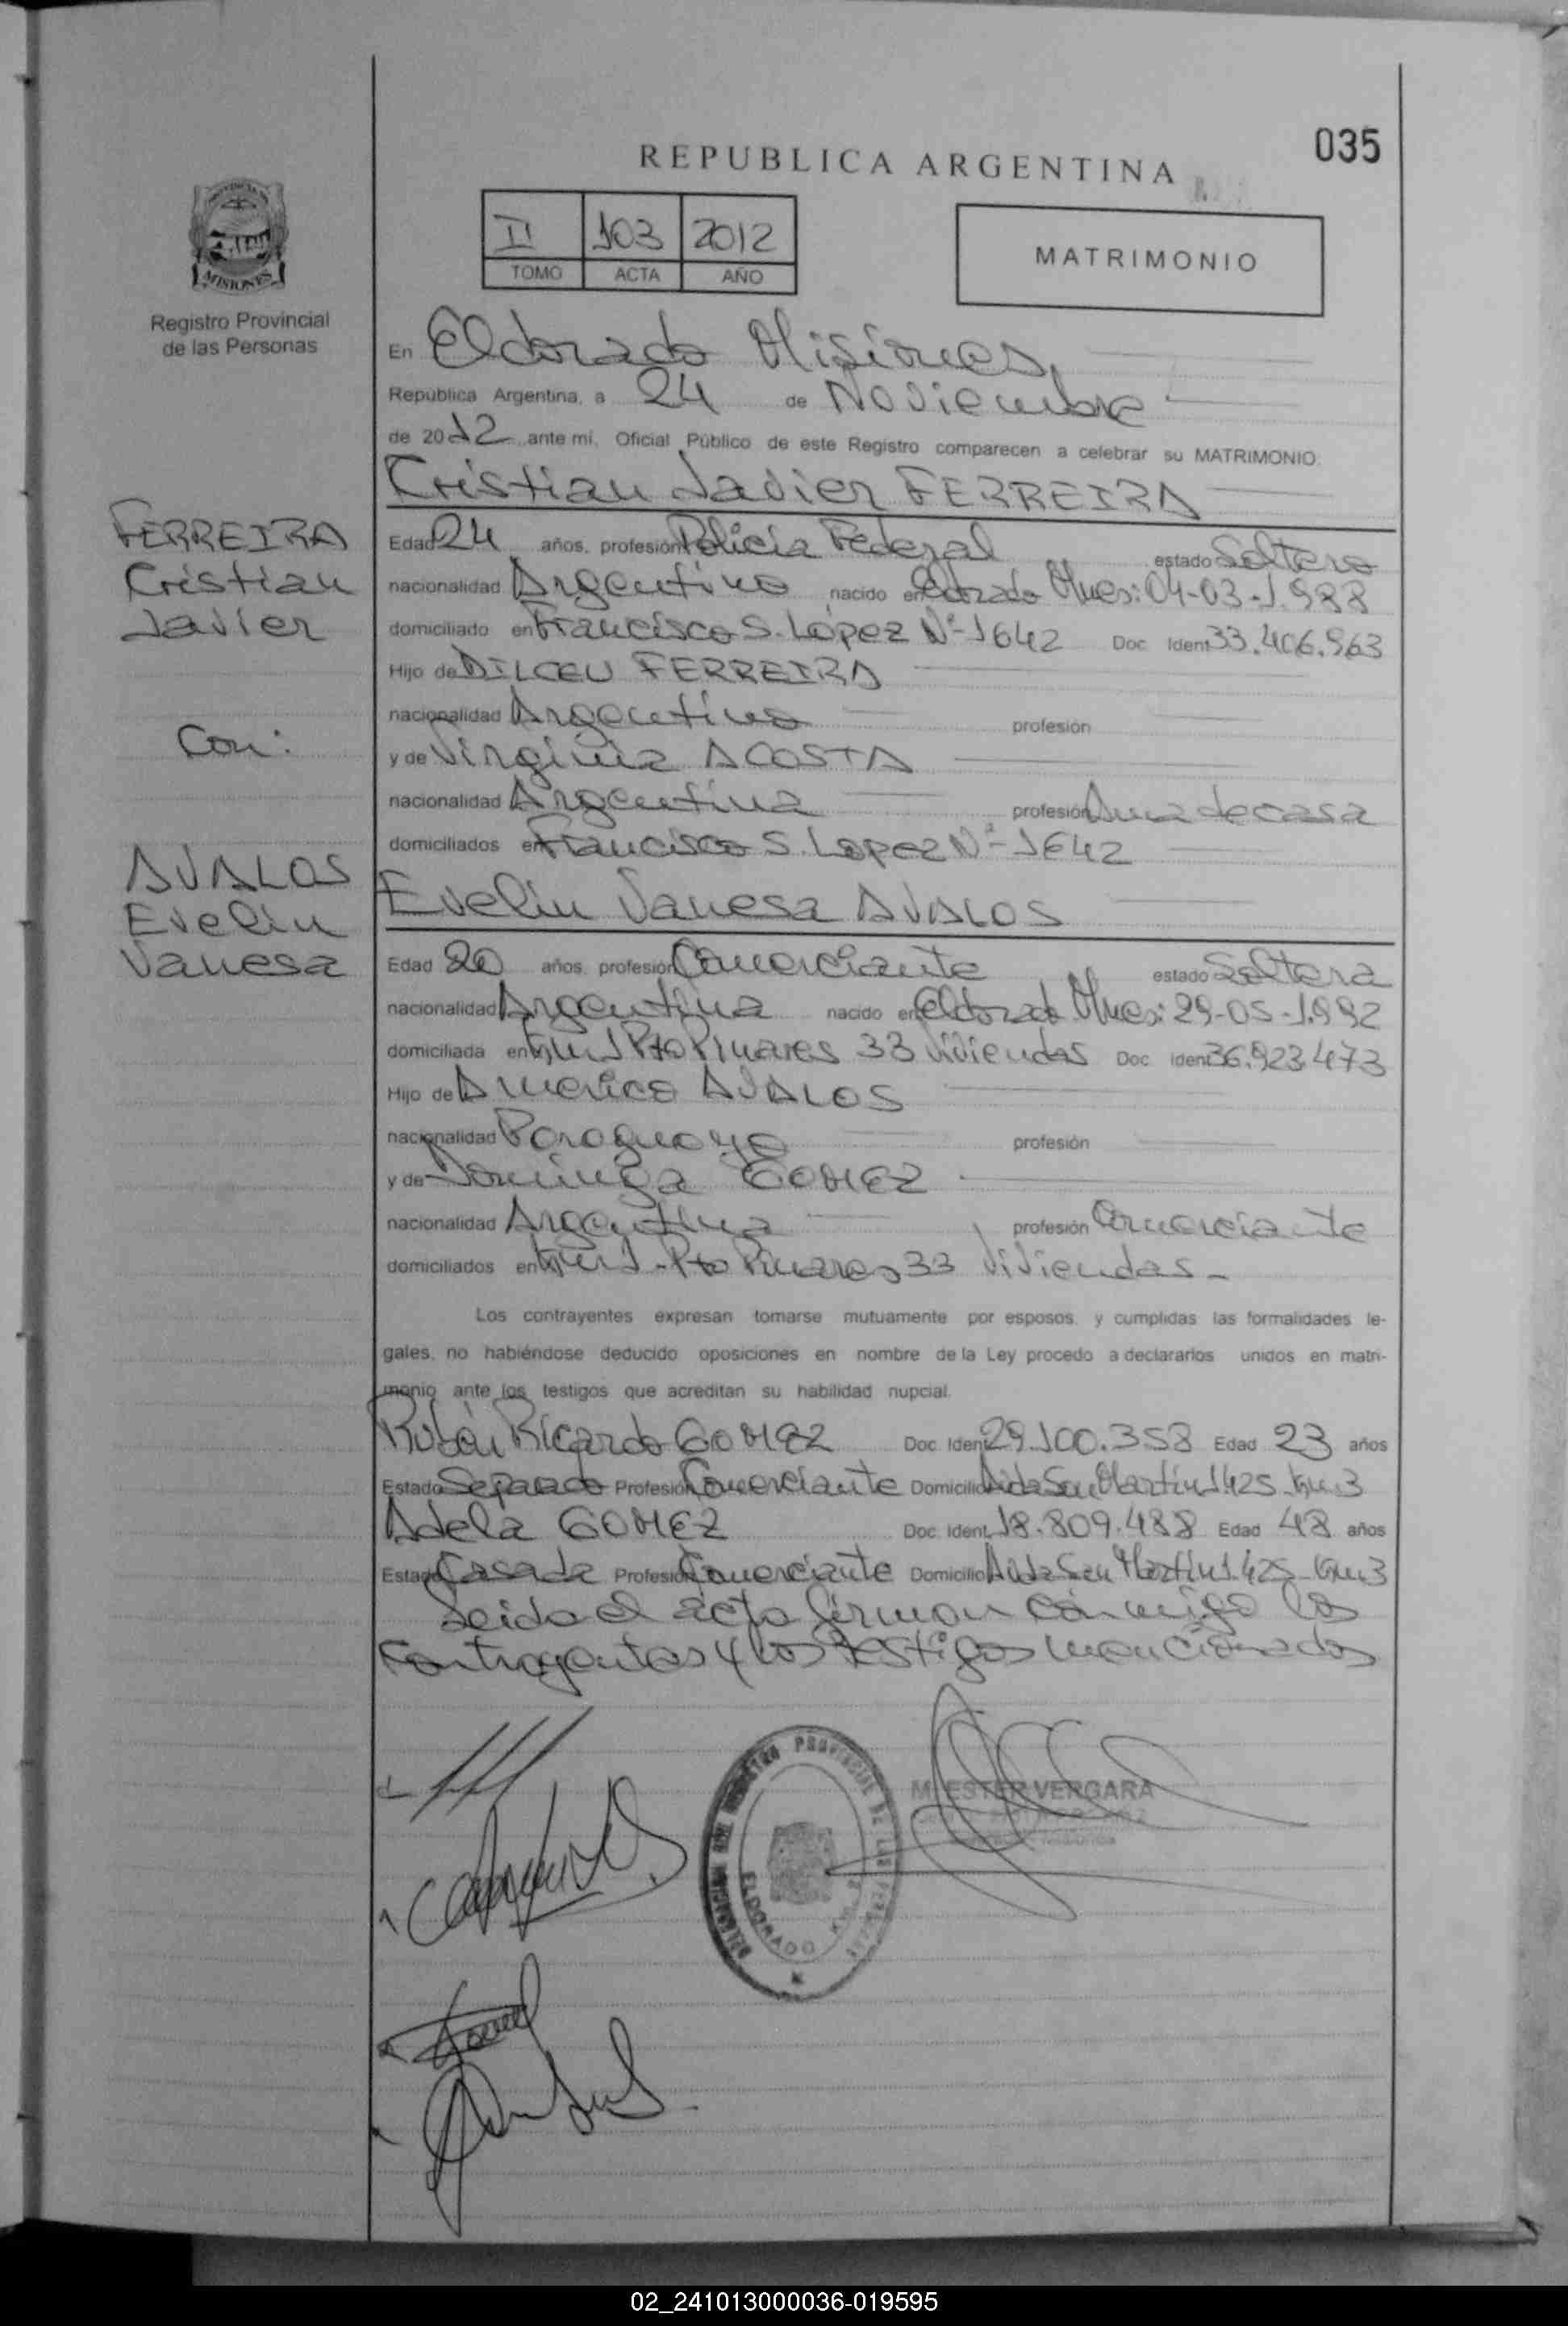 035
REPUBLICA ARGENTINA
II 103 2012
TOMO ACTA AÑO
MATRIMONIO
MISIONES
Registro Provincial
de las Personas
En Eldorado Misiones,
República Argentina, a 24 de Noviembre
de 2012 ante mí, Oficial Público de este Registro comparecen a celebrar su MATRIMONIO:
Cristian Javier FERREIRA
FERREIRA
Cristian
Javier
Con:
AVALOS
Evelin
Vanesa
Edad 24 años, profesión Policía Federal estado Soltero
nacionalidad Argentino nacido en Eldorado Mnes: 04-03-1.988
domiciliado en Francisco S. López Nº-1642 Doc. Ident 33.406.963
Hijo de DILCEU FERREIRA
nacionalidad Argentino profesión
y de Virginia ACOSTA
nacionalidad Argentina profesión Ama de casa
domiciliados en Francisco S. Lopez Nº-1642
Evelin Vanesa AVALOS
Edad 20 años, profesión Comerciante estado Soltera
nacionalidad Argentina nacido en Eldorado Mnes: 29-05-1.992
domiciliada en Km 1 Pto Pinares 33 Viviendas Doc. Ident 36.923.473
Hijo de Americo AVALOS
nacionalidad Paraguayo profesión
y de Dominga GOMEZ
nacionalidad Argentina profesión Comerciante
domiciliados en Km 1-Pto Pinares 33 Viviendas-
Los contrayentes expresan tomarse mutuamente por esposos, y cumplidas las formalidades le-
gales, no habiéndose deducido oposiciones en nombre de la Ley procedo a declararlos unidos en matri-
monio ante los testigos que acreditan su habilidad nupcial.
Rubén Ricardo GOMEZ Doc. Ident 29.100.358 Edad 23 años
Estado Separado Profesión Comerciante Domicilio Avda San Martín 1425-Km 3
Adela GOMEZ Doc. Ident. 18.809.488 Edad 48 años
Estado Casada Profesión Comerciante Domicilio Avda San Martín 1.425-Km 3
Leida el acta firman conmigo los
contrayentes y los testigos mencionados
REGISTRO PROVINCIAL DE LAS PERSONAS
ELDORADO
M. ESTER VERGARA
02_241013000036-019595